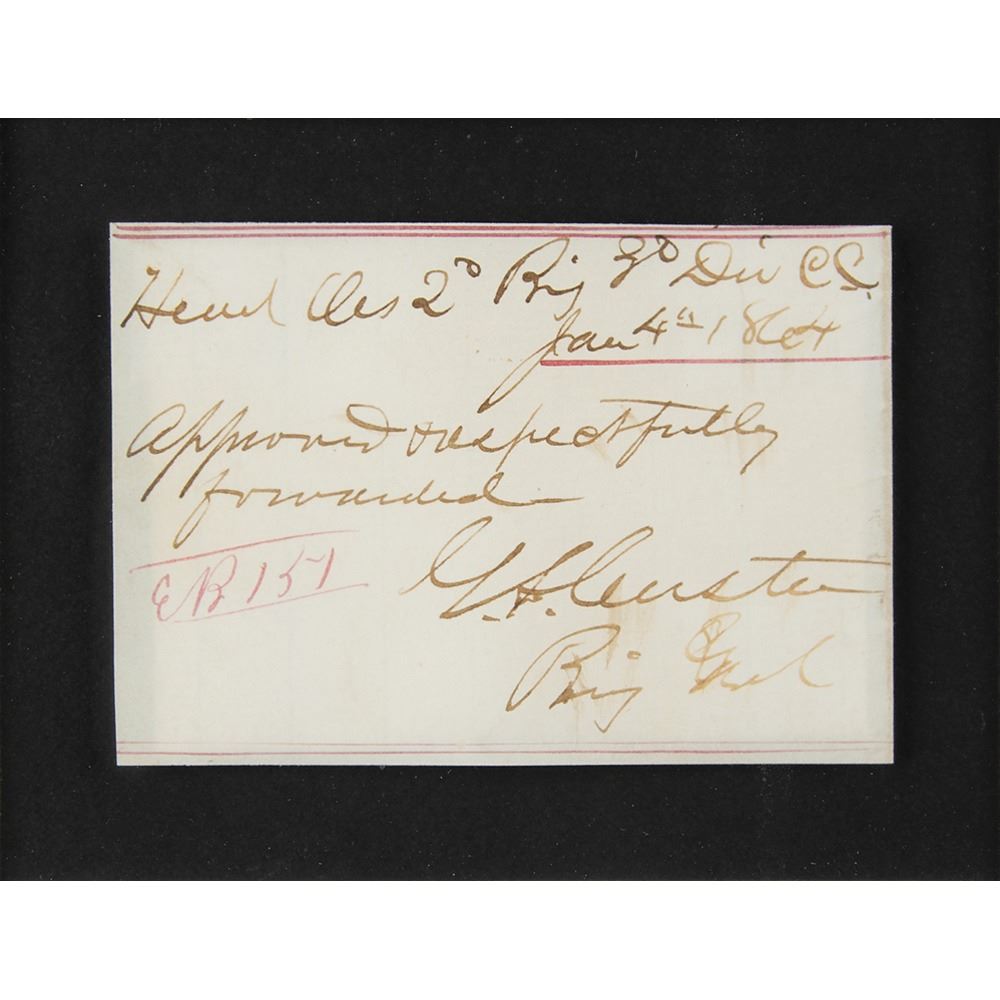 Head Qrs 2ᴰ Brig 3ᴰ Div C.C.
Jan 4th 1864
Approved & respectfully
forwarded
EB 151
G. A. Custer
Brig Genl